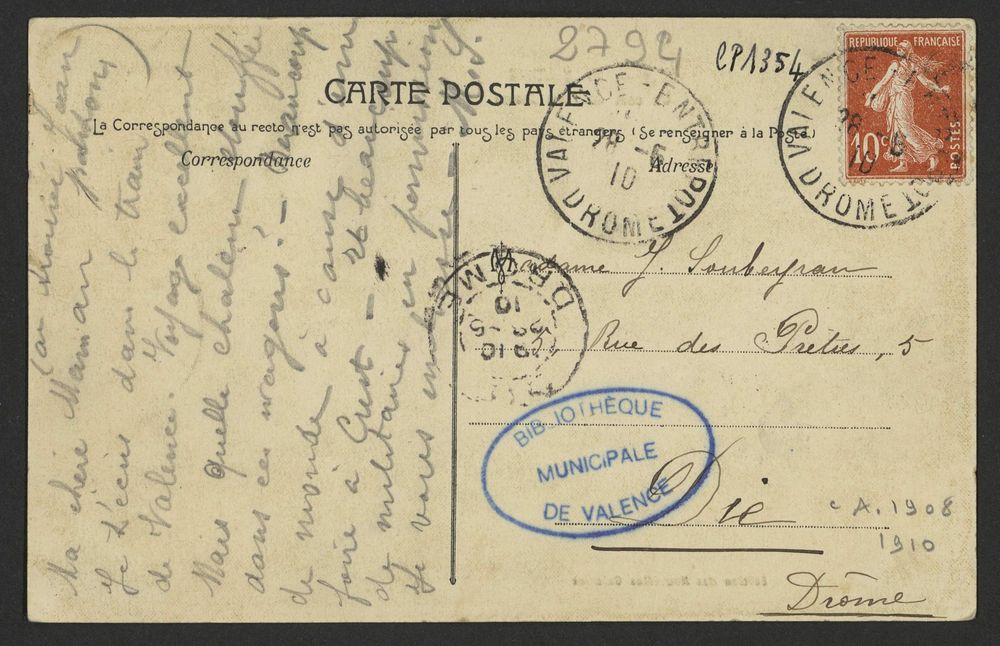 8794
CP1354
RÉPUBLIQUE FRANÇAISE
10 c
POSTES
CARTE POSTALE
La Correspondance au recto n'est pas autorisée par tous les pays étrangers (Se renseigner à la Poste)
Correspondance
Adresse
VALENCE-ENTREPOT
26 -6
10
DROME
VALENCE
26 -6
10
DROME
Ma chère Maman
je t'écris dans le train
de Valence. Voyage excellent
Mais quelle chaleur étouffée
dans ces wagons! - Beaucoup
de monde à cause d'une
foire à Crest - et beaucoup
de militaires en permission
Je vous embrasse
DROME
10
Madame J. Soubeyran
5, Rue des Prêtres, 5
BIBLIOTHÈQUE
MUNICIPALE
DE VALENCE
Die
Drôme
c A. 1908
1910